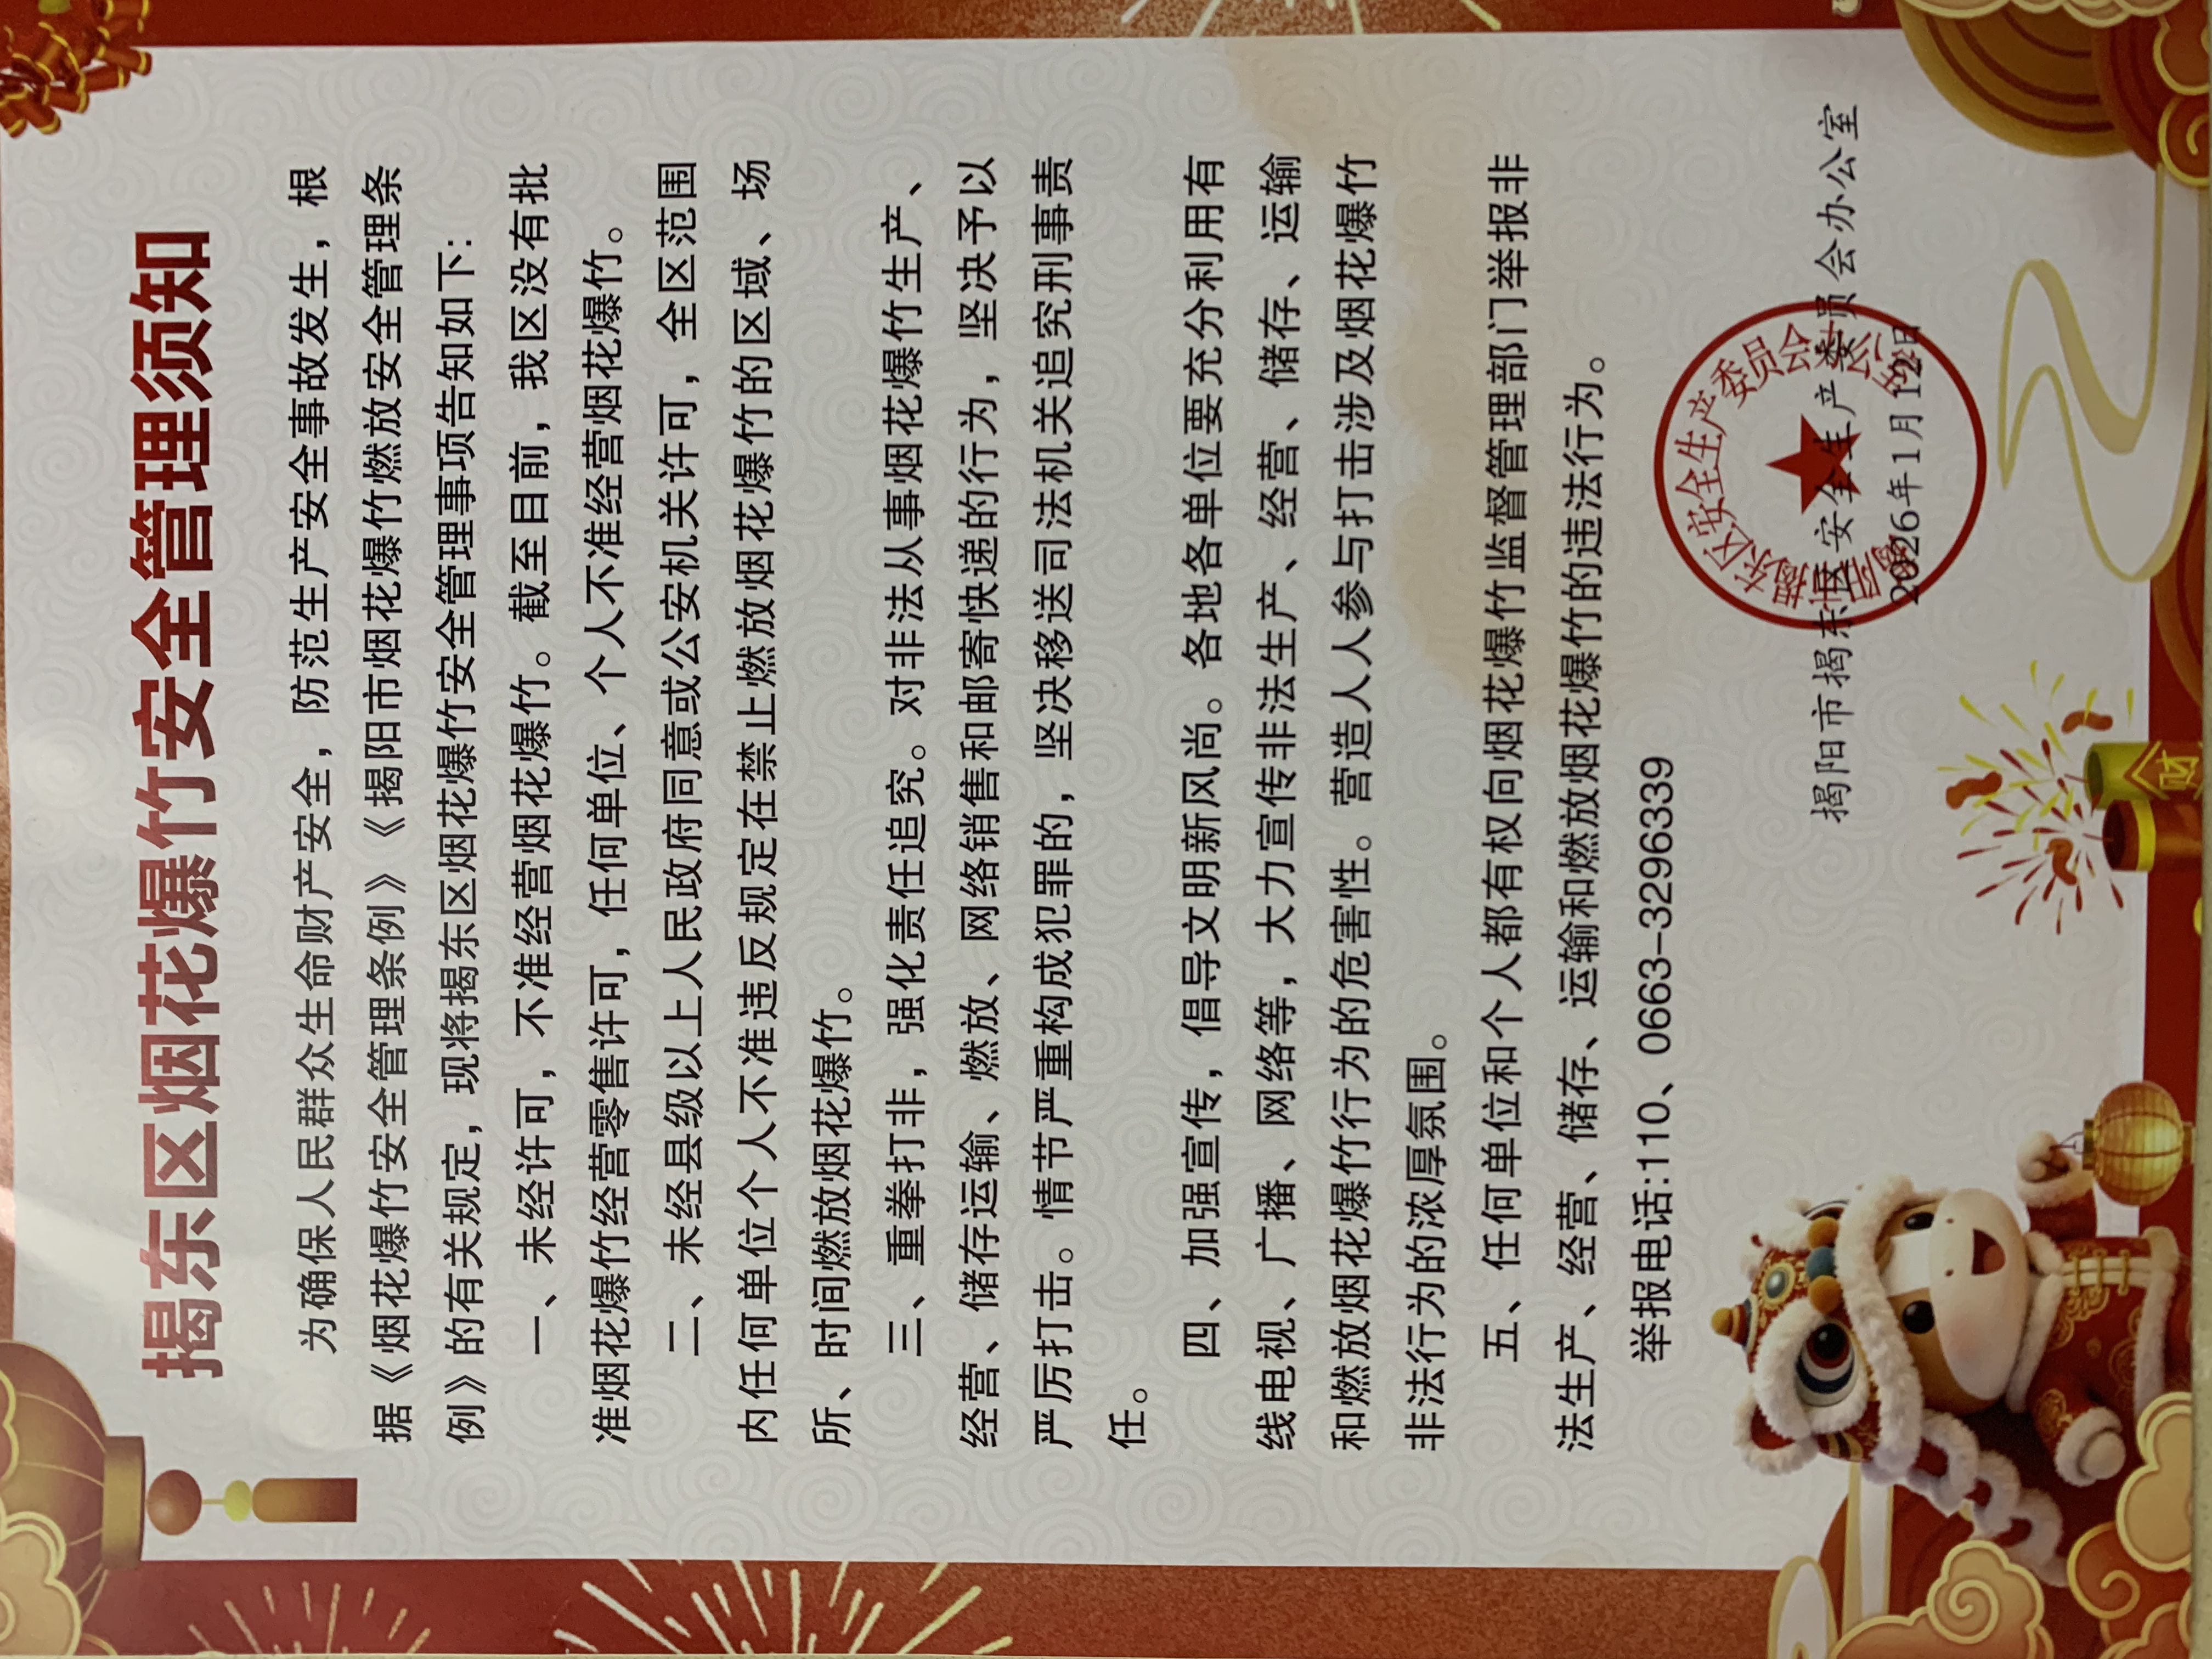 揭东区烟花爆竹安全管理须知
为确保人民群众生命财产安全，防范生产安全事故发生，根
据《烟花爆竹安全管理条例》《揭阳市烟花爆竹燃放安全管理条
例》的有关规定，现将揭东区烟花爆竹安全管理事项告知如下：
一、未经许可，不准经营烟花爆竹。截至目前，我区没有批
准烟花爆竹经营零售许可，任何单位、个人不准经营烟花爆竹。
二、未经县级以上人民政府同意或公安机关许可，全区范围
内任何单位个人不准违反规定在禁止燃放烟花爆竹的区域、场
所、时间燃放烟花爆竹。
三、重拳打非，强化责任追究。对非法从事烟花爆竹生产、
经营、储存运输、燃放、网络销售和邮寄快递的行为，坚决予以
严厉打击。情节严重构成犯罪的，坚决移送司法机关追究刑事责
任。
四、加强宣传，倡导文明新风尚。各地各单位要充分利用有
线电视、广播、网络等，大力宣传非法生产、经营、储存、运输
和燃放烟花爆竹行为的危害性。营造人人参与打击涉及烟花爆竹
非法行为的浓厚氛围。
五、任何单位和个人都有权向烟花爆竹监督管理部门举报非
法生产、经营、储存、运输和燃放烟花爆竹的违法行为。
举报电话：110、0663-3296339
揭阳市揭东区安全生产委员会办公室
2026年1月12日
财